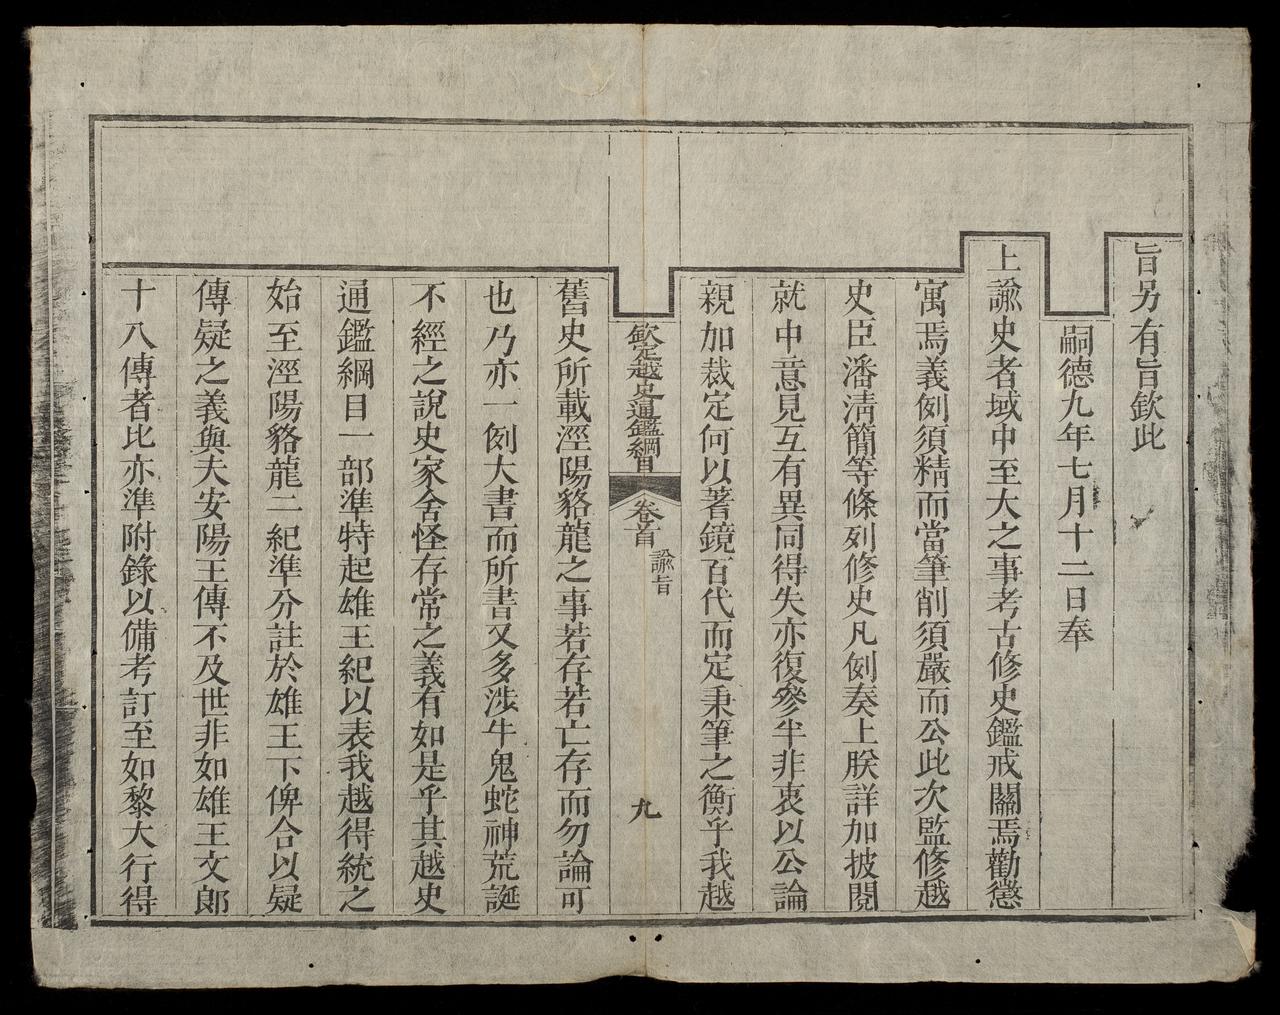 旨另有旨欽此
嗣德九年七月十二日奉
上諭史者域中至大之事考古修史鑑戒關焉勸懲
寓焉義例須精而當筆削須嚴而公此次監修越
史臣潘淸簡等條列修史凡例奏上朕詳加披閱
就中意見互有異同得失亦復參半非衷以公論
親加裁定何以著鏡百代而定秉筆之衡乎我越
欽定越史通鑑綱目 卷首 諭旨 九
舊史所載涇陽貉龍之事若存若亡存而勿論可
也乃亦一例大書而所書又多涉牛鬼蛇神荒誕
不經之說史家舍怪存常之義有如是乎其越史
通鑑綱目一部準特起雄王紀以表我越得統之
始至涇陽貉龍二紀準分註於雄王下俾合以疑
傳疑之義與夫安陽王傳不及世非如雄王文郎
十八傳者比亦準附錄以備考訂至如黎大行得